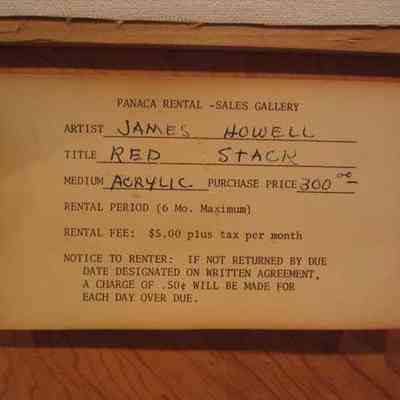 PANACA RENTAL -SALES GALLERY
ARTIST JAMES HOWELL
TITLE RED STACK
MEDIUM ACRYLIC PURCHASE PRICE 300 00
RENTAL PERIOD (6 Mo. Maximum)
RENTAL FEE: $5.00 plus tax per month
NOTICE TO RENTER: IF NOT RETURNED BY DUE
DATE DESIGNATED ON WRITTEN AGREEMENT,
A CHARGE OF .50¢ WILL BE MADE FOR
EACH DAY OVER DUE.